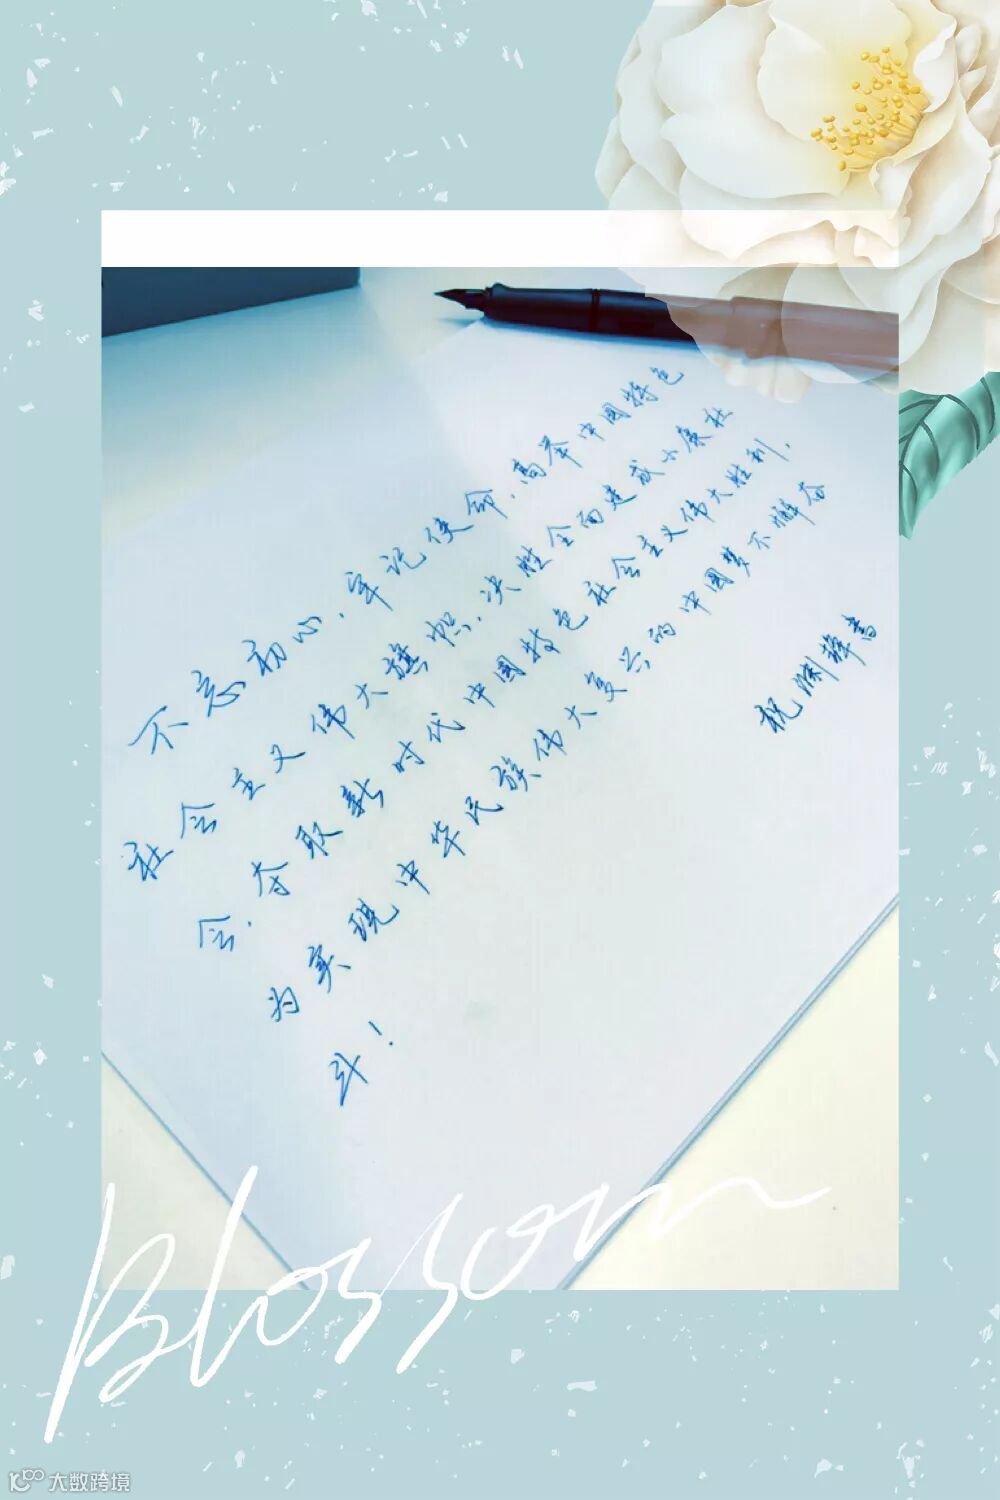 不忘初心,牢记使命,高举中国特色
社会主义伟大旗帜,决胜全面建成小康社
会,夺取新时代中国特色社会主义伟大胜利,
为实现中华民族伟大复兴的中国梦不懈奋
斗!
祝渊
书
Blossom
大数跨境